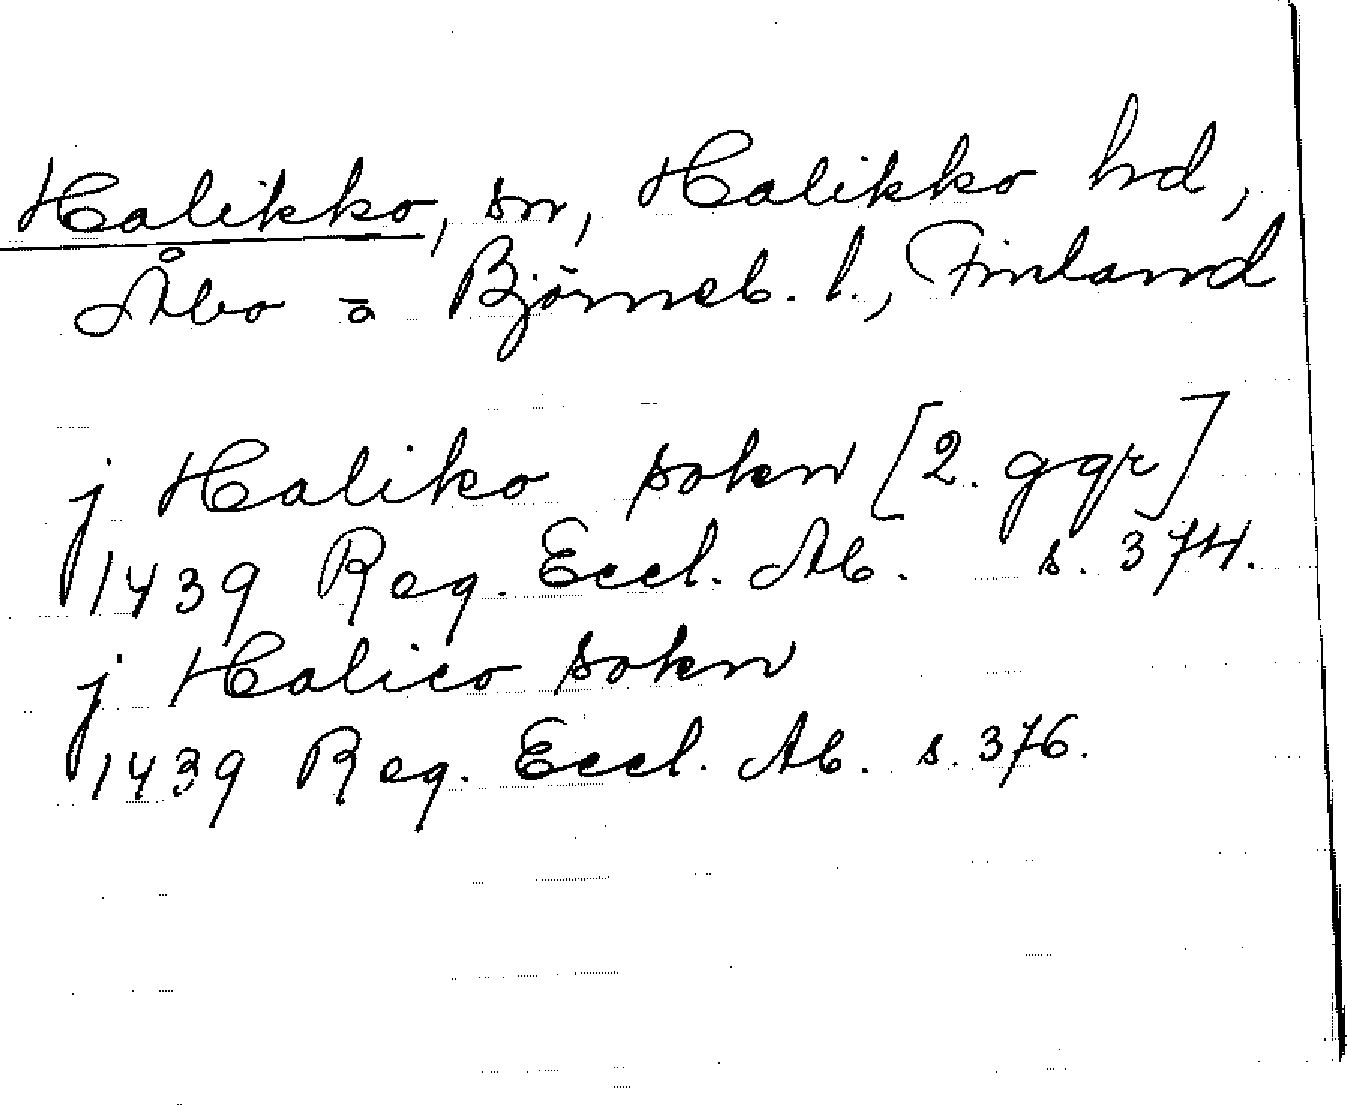 Halikko, sn, Halikko hd,
Åbo = Björneb. l., Finland
j Haliko sokn [2. ggr]
1439 Reg. Eccl. Ab. s. 374.
j Halico sokn
1439 Reg. Eccl. Ab. s. 376.